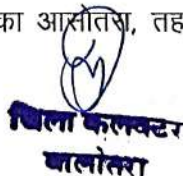 का आसोतरा, तह
जिला कलक्टर
बालोतरा